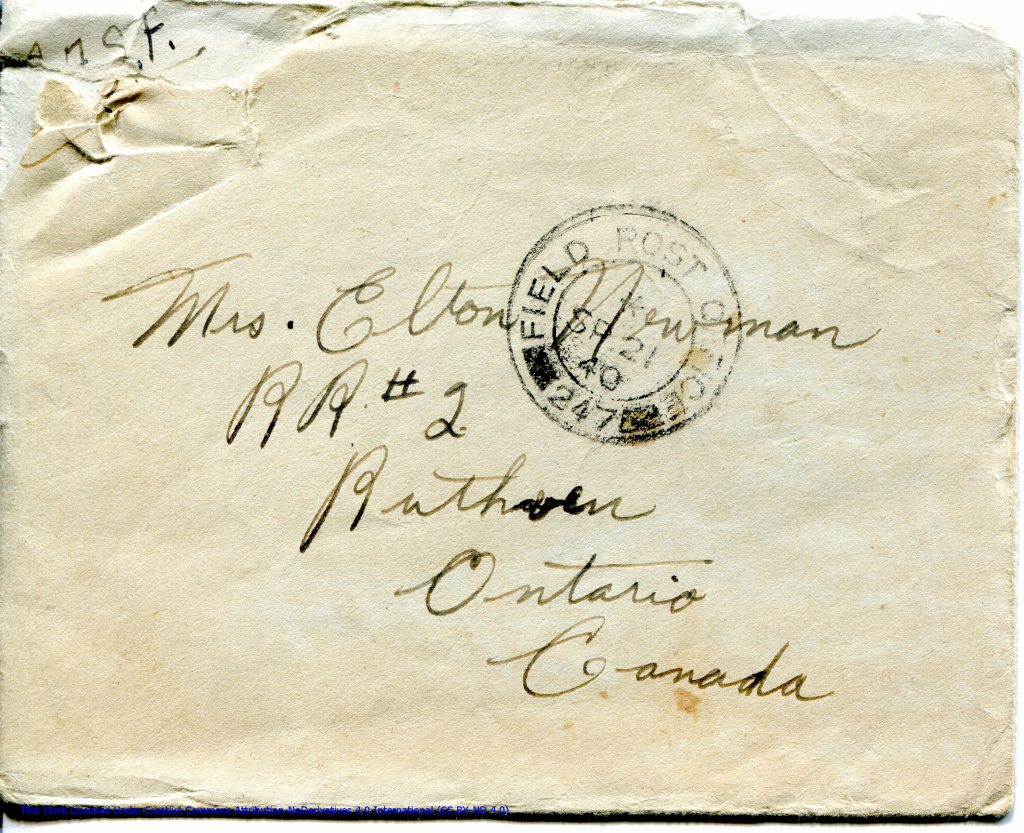 Mrs. Elton Newman
RR. # 2
Ruthven
Ontario
Canada
FIELD POST OFFICE
SP 21
40
247
This Work Licensed Under Creative Commons Attribution-NoDerivatives 4.0 International (CC BY-ND 4.0)